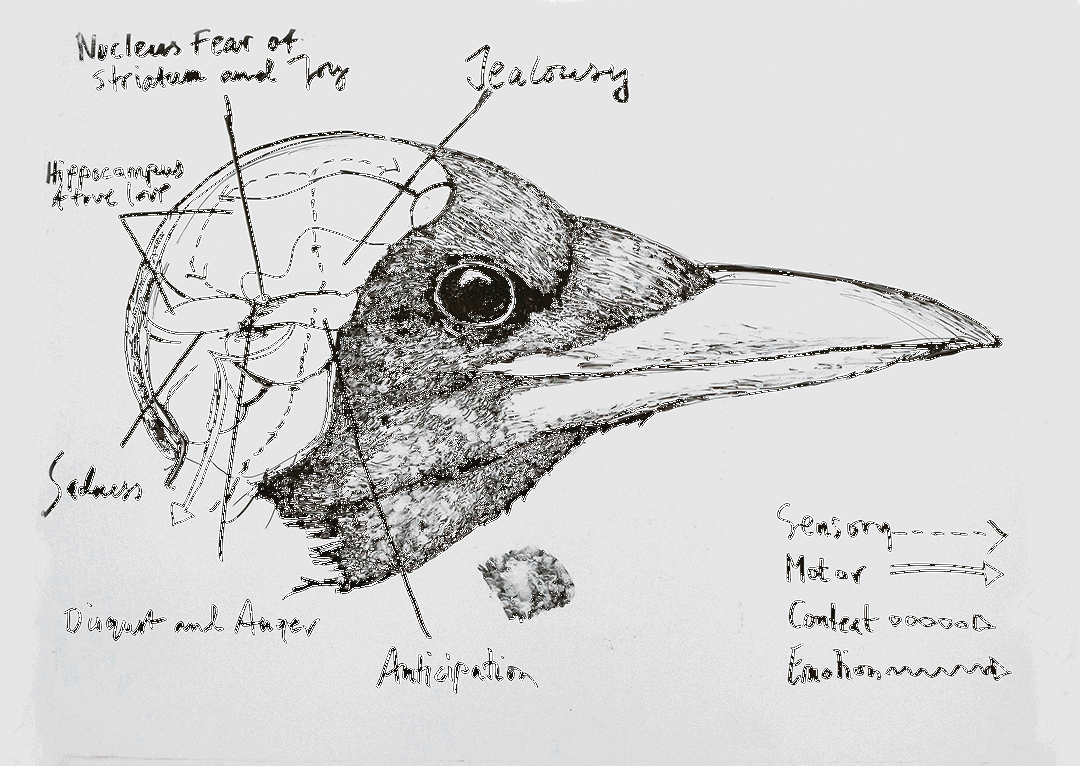 Nucleus Fear of
Striatum and Joy
Jealousy
Hippocampus
A true love
Sadness
Disgust and Anger
Anticipation
Sensory
Motor
Context
Emotion